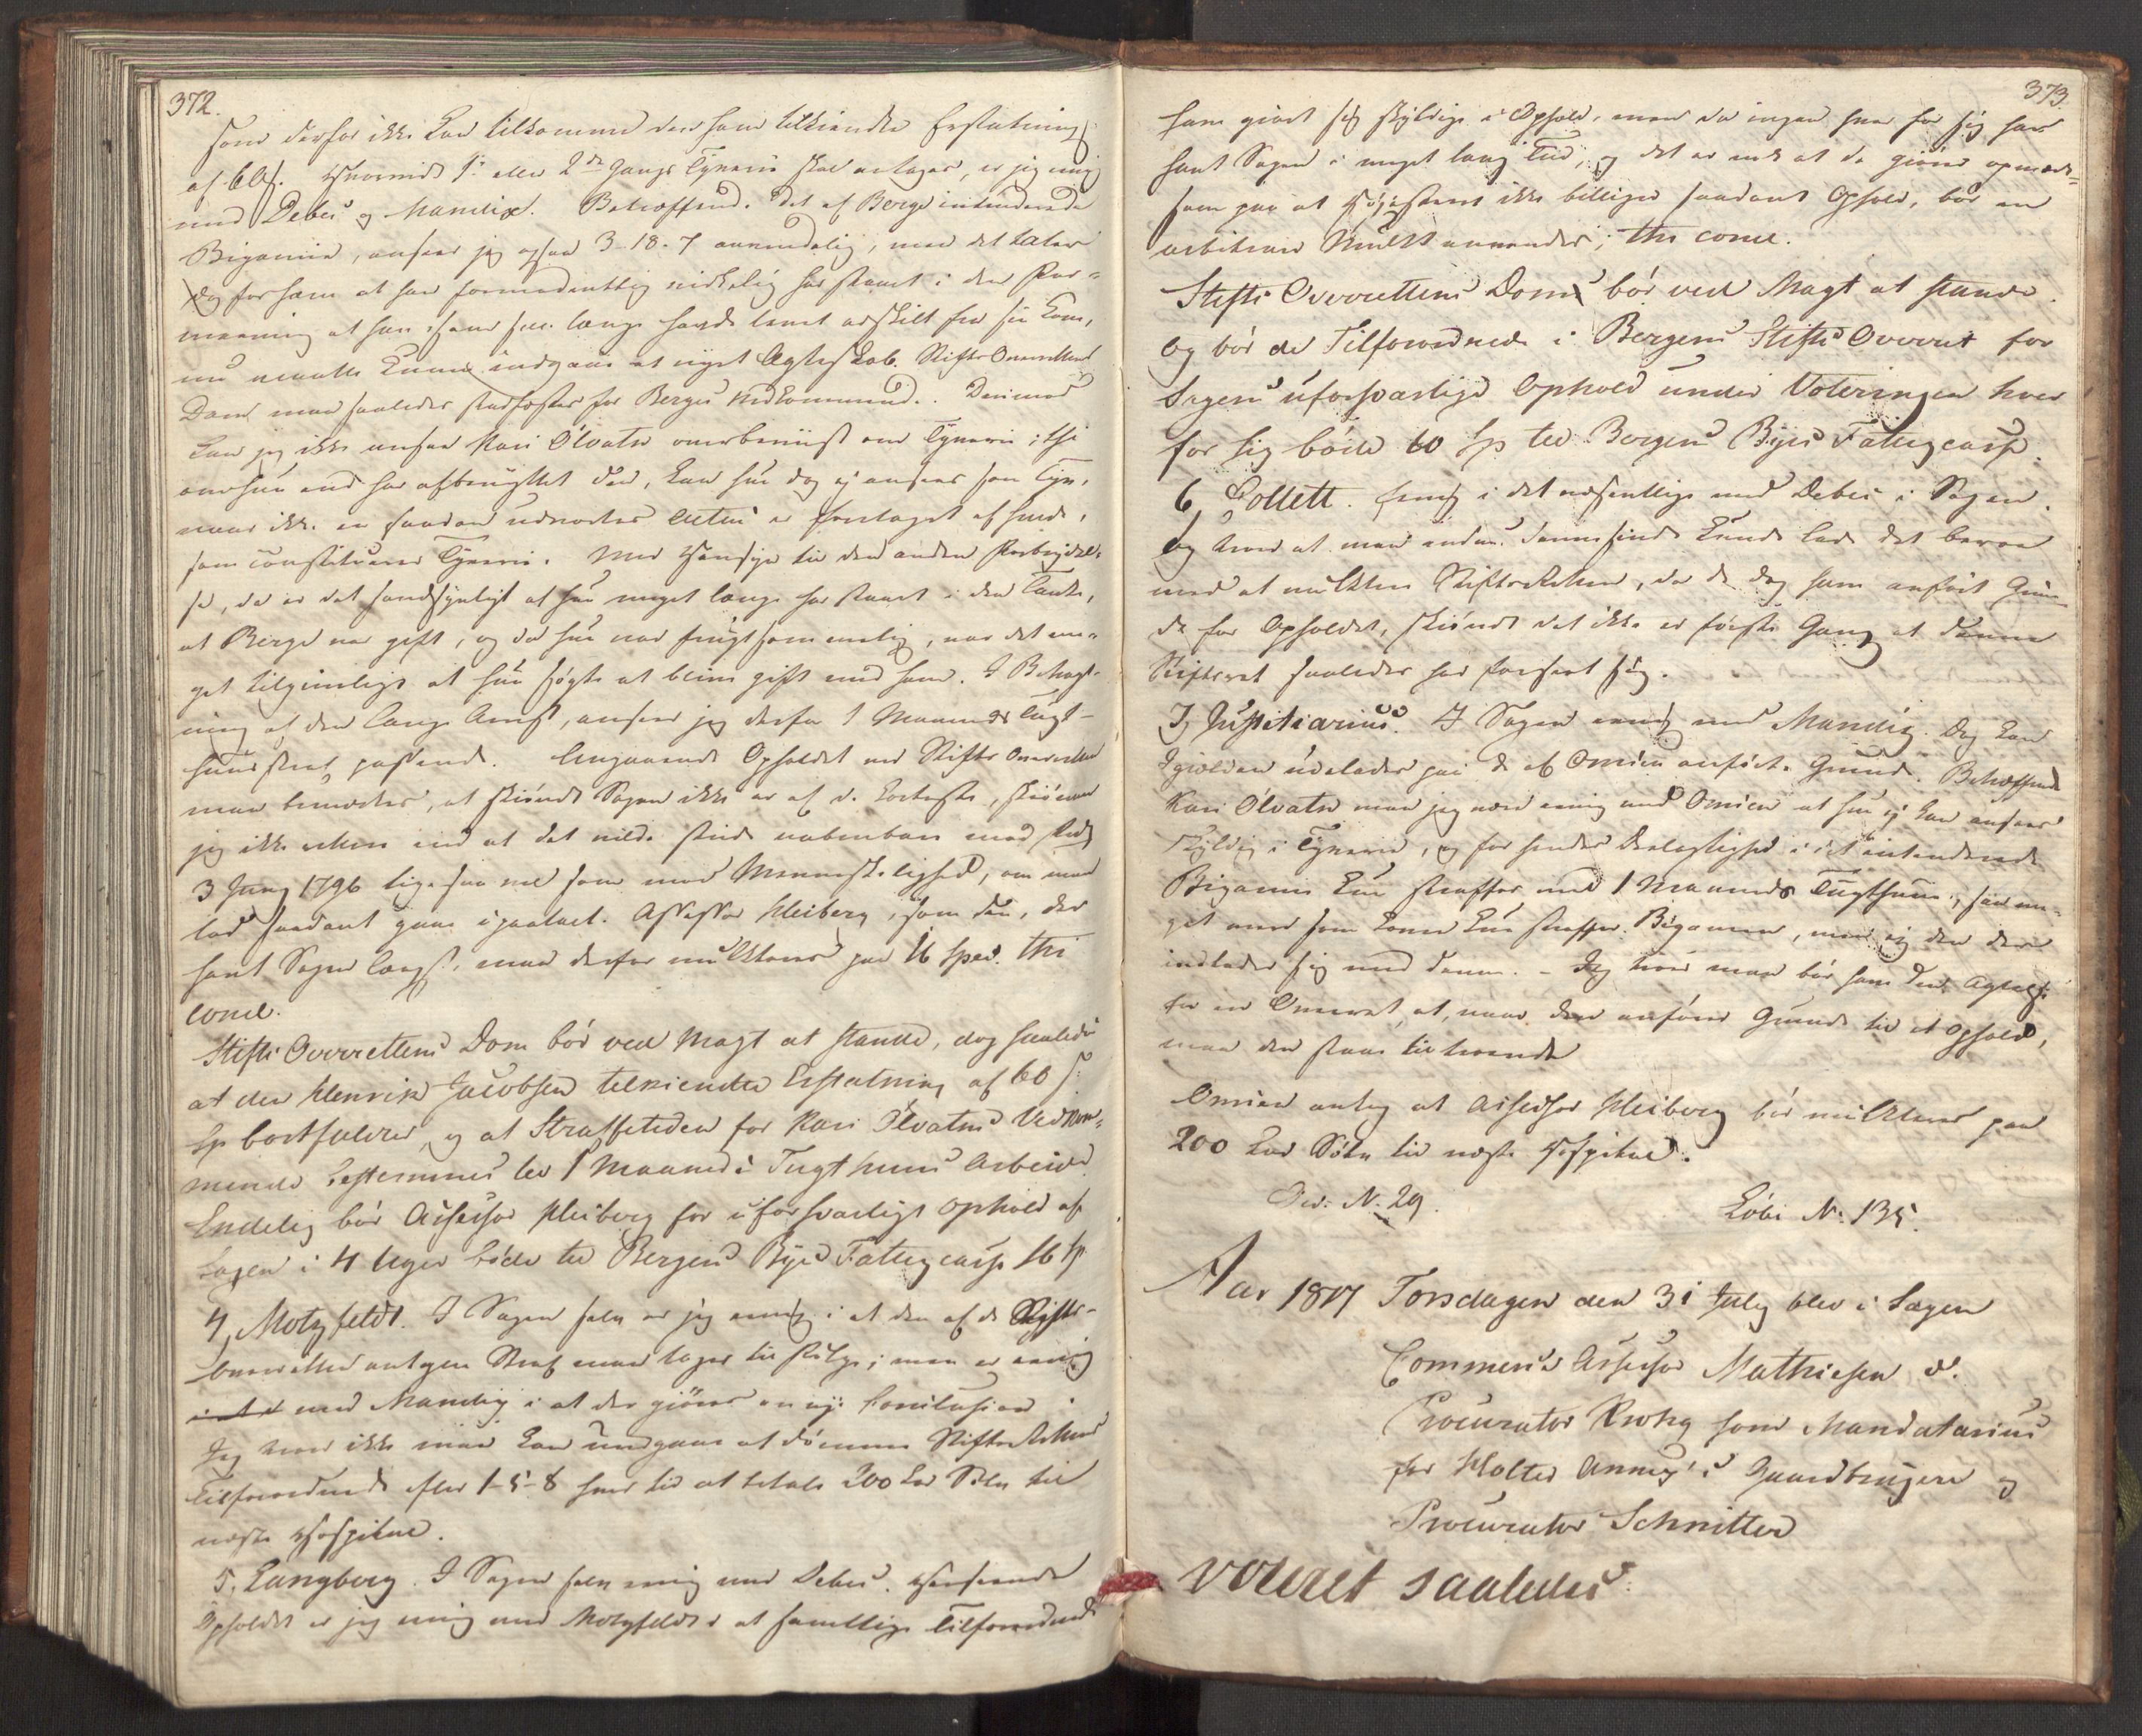 372.
som derfor ikke kan tilkomme den ham tilkiendte Erstatning
af 60 f. Hvorvidt 1. eller 2den Gangs Tyverie skal antages, er jeg enig
med Debes og Mandix. Betræffende det af Berge intenderede
Bigamie, anseer jeg ogsaa 3-18-7 anvendelig, men det taler
dog for ham at han formodentlig virkelig har staaet i den For-
meening at han som saa længe havde levet adskilt fra sin Kone,
nu maatte kunne indgaae et nyet Ægteskab. Stifts Overrettens
Dom maa saaledes stadfæstes for Berges Vedkommende. Derimod
kan jeg ikke ansee Kari Ølvatn overbeviist om Tyverie; thi
om hun end har afbenyttet den, kan hun dog ej ansees som Tyv,
naar ikke en saadan udvortes Actus er foretaget af hende,
som constituerer Tyverie. Med Hensyn til den anden Forbrydel-
se, da er det sandsynligt at hun meget længe har staaet i den Tanke,
at Berge var gift, og da hun var frugtsommelig, var det me-
get tilgiveligt at hun søgte at blive gift med ham. I Betragt-
ning af den lange Arrest, anseer jeg derfor 1 Maaneds Tugt-
huusstraf passende. Angaaende Opholdet ved Stifts Overretten
maa bemærkes, at skiøndt Sagen ikke er af de korteste, skiønner
jeg ikke rettere end at det vilde stride aabenbare mod Frdg
3 Juny 1796 ligesaa vel som mod Menneskelighed, om man
lod saadant gaae upaatalt. Assessor Heiberg, som den, der
havt Sagen længst, maa derfor mulkteres paa 16 Spd. thi
concl.
Stifts Overrettens Dom bør ved Magt at stande, dog saaledes
at den Henrik Jacobsen tilkiendte Erstatning af 60 f
Sp bortfalder, og at Straffetiden for Kari Ølvatns Vedkom-
mende bestemmes til 1 Maaneds Tugthuus Arbeide.
Endelig bør Assessor Heiberg for uforsvarligt Ophold af
Sagen i 4 Uger bøde til Bergens Byes Fattigcasse 16 Sp.
4, Motzfeldt. I Sagen selv er jeg enig i at den af de Stifts-
Overretten antagne Straf maa tages til følge; men er enig
med Mandix i at der giøres en nye Conclusion
Jeg troer ikke man kan undgaae at dømme Stiftsrettens
Tilforordnede efter 1-5-8 hver til at betale 200 Lod Sølv til
næste Hospital.
5. Langberg. I Sagen selv enig med Debes. Henseende
Opholdet er jeg enig med Motzfeldt i at samtlige Tilforordnede
373.
have giort sig skyldige i Ophold, men da ingen hver for sig har
havt Sagen i meget lang Tid, og det er nok at de giøres opmærk-
som paa at Høiesteret ikke billiger saadant Ophold, bør en
arbitrair Mulkt anvendes; thi concl.
Stifts Overrettens Dom bør ved Magt at stande.
og bør de Tilforordnede i Bergens Stifts Overret for
Sagens uforsvarlige Ophold under Voteringen hver
for sig bøde 10 Sp til Bergens Byes Fattigcasse.
6, Collett. Enig i det væsentlige med Debes i Sagen.
Og troer at man endnu denne sinde kunde lade det beroe
med at mulktere Stiftsretten, da de dog have anført Grun-
de for Opholdet, skiøndt det ikke er første Gang at denne
Stiftsret saaledes har forseet sig.
7, Justitiarius. I Sagen enig med Mandix. Dog kan
udelades paa de af Omsen anførte Grunde. Betræffende
Kari Ølvatn maa jeg være enig med Omsen at hun ej kan ansees
skyldig i Tyverie, og for hendes Deelagtighed i det intenderede
Bigamie kun straffes med 1 Maaneds Tugthuus, saa me-
get meer som Loven kun straffer Bigamen, men ej den der
indlader sig med denne. - Jeg troer man bør have den Agtelse
for en Overret, at, naar den anfører Grunde til et Ophold,
maa den staae til troende
Omsen antog at Assessor Heiberg bør mulkteres paa
200 Lod Sølv til næste Hospital.
Ord: N: 29.
Løbe N: 135.
Aar 1817 Torsdagen den 31 July blev i Sagen
Commerce Assessor Mathiesen &.
Procurator Krohg som Mandatarius
for Holter Annex's Gaardbrugere og
Procurator Schnitler
voteret saaledes: